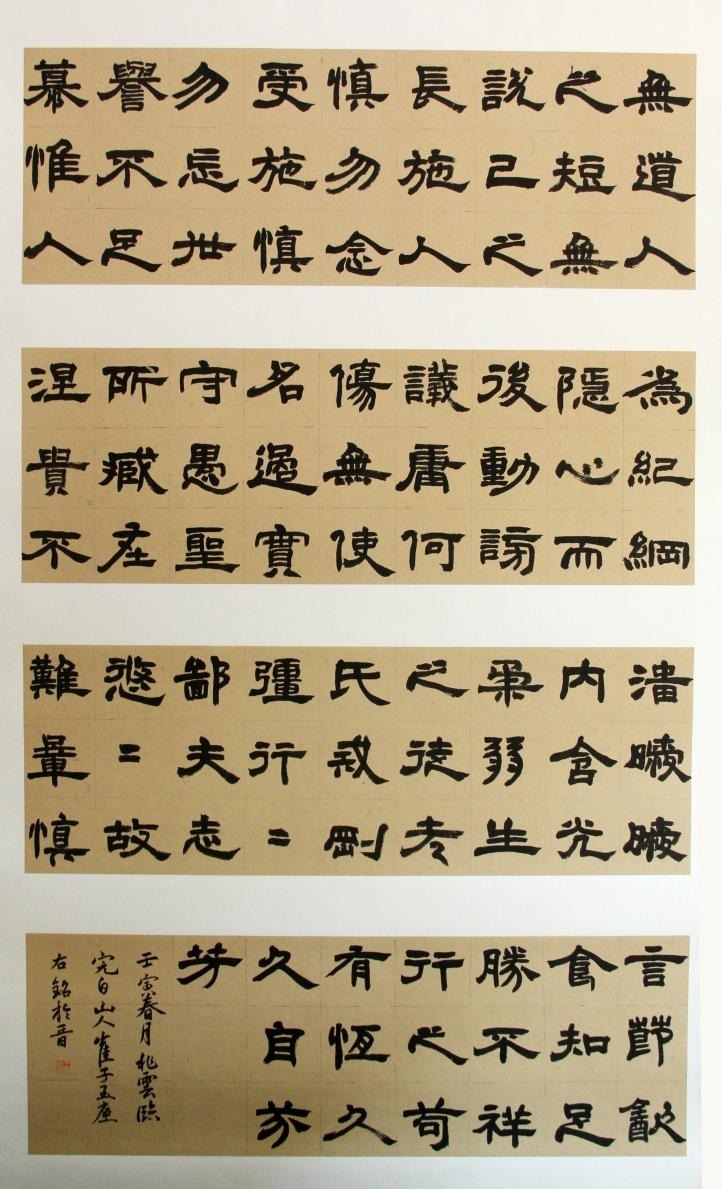 無道人
之短無
說己之
長施人
慎勿念
受施慎
勿忘世
譽不足
慕惟人
為紀綱
隱心而
後動謗
議庸何
傷無使
名過實
守愚聖
所臧在
涅貴不
淄曖曖
內含光
柔弱生
之徒老
氏戒剛
彊行〻
鄙夫志
悠〻故
難量慎
言節飲
食知足
勝不祥
行之苟
有恆久
久自芬
芳
壬寅春月雲臨
完白山人崔子玉座
右銘於晉